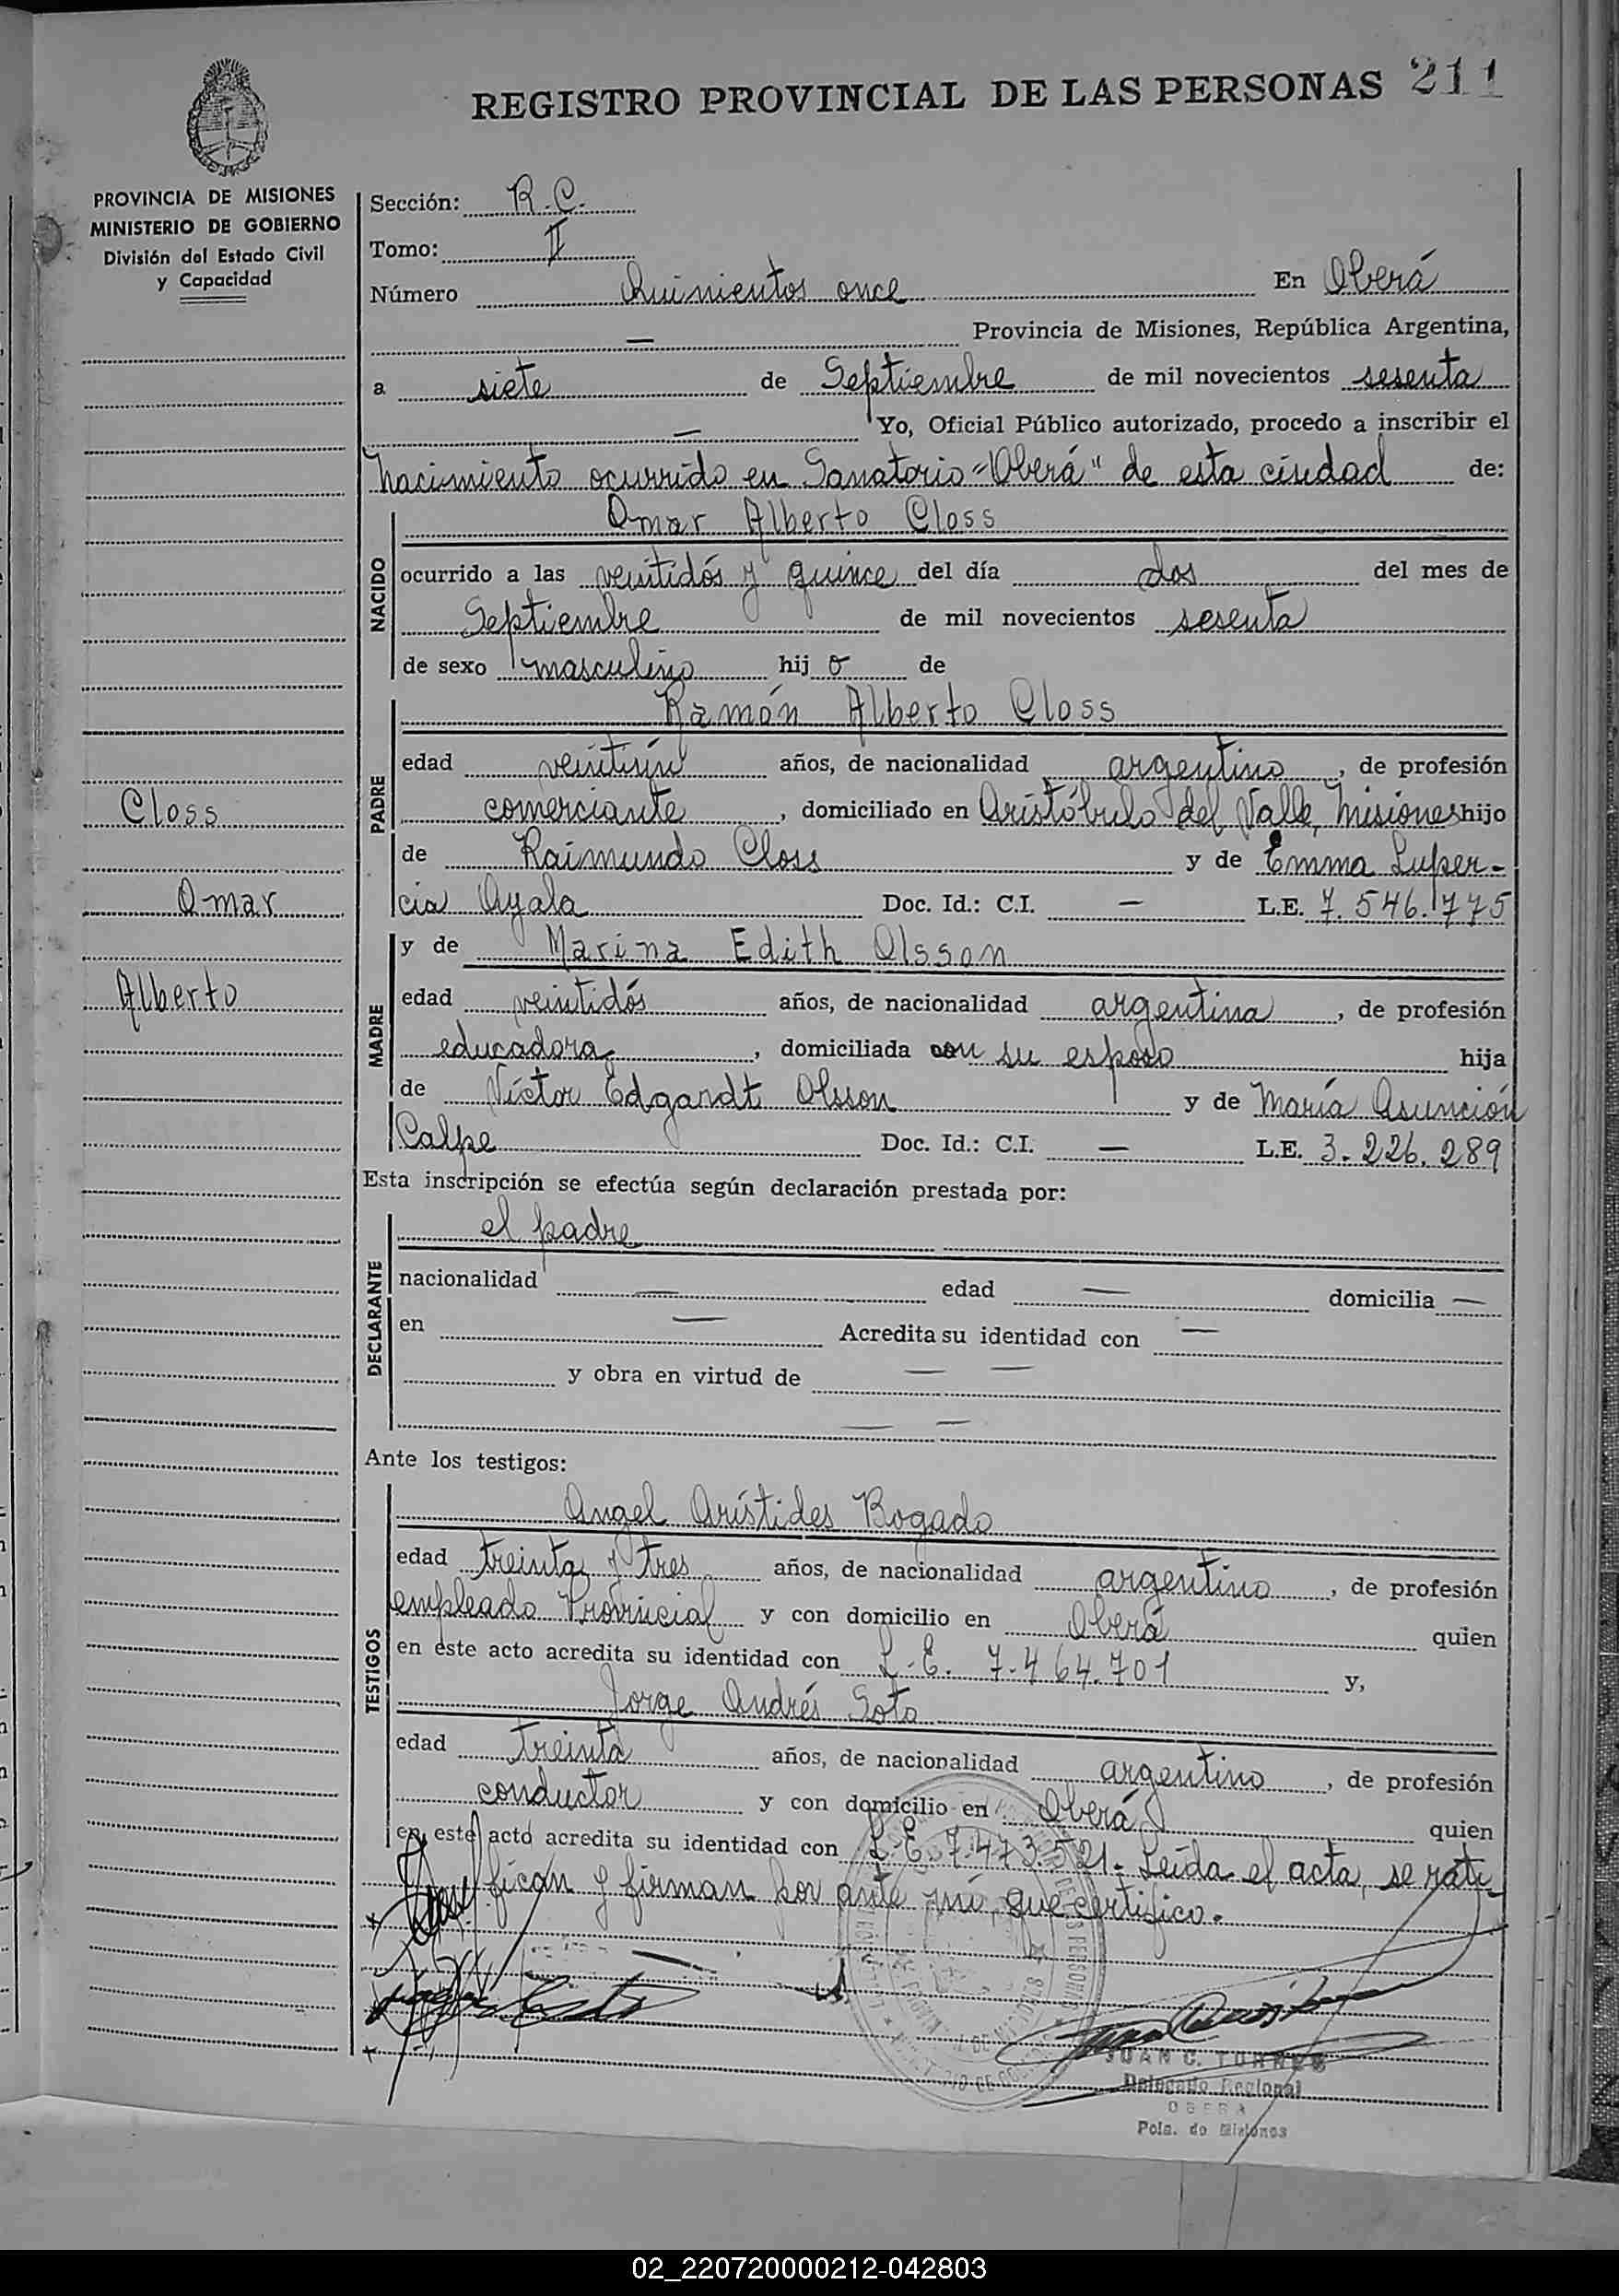 REGISTRO PROVINCIAL DE LAS PERSONAS 211
PROVINCIA DE MISIONES
MINISTERIO DE GOBIERNO
División del Estado Civil
y Capacidad
Closs
Omar
Alberto
Sección: R.C.
Tomo: II
Número Quinientos once En Oberá
— Provincia de Misiones, República Argentina,
a siete de Septiembre de mil novecientos sesenta
— Yo, Oficial Público autorizado, procedo a inscribir el
nacimiento ocurrido en Sanatorio "Oberá" de esta ciudad de:
NACIDO
Omar Alberto Closs
ocurrido a las veintidós y quince del día dos del mes de
Septiembre de mil novecientos sesenta
de sexo masculino hijo de
PADRE
Ramón Alberto Closs
edad veintiún años, de nacionalidad argentino, de profesión
comerciante, domiciliado en Aristóbulo del Valle, Misiones hijo
de Raimundo Closs y de Emma Luper-
cia Ayala Doc. Id.: C.I. — L.E. 7.546.775
MADRE
y de Marina Edith Olsson
edad veintidós años, de nacionalidad argentina, de profesión
educadora, domiciliada con su esposo hija
de Víctor Edgandt Olsson y de María Asunción
Calpe Doc. Id.: C.I. — L.E. 3.226.289
Esta inscripción se efectúa según declaración prestada por:
DECLARANTE
el padre
nacionalidad — edad — domicilia —
en — Acredita su identidad con —
y obra en virtud de — —
— —
Ante los testigos:
TESTIGOS
Angel Arístides Bogado
edad treinta y tres años, de nacionalidad argentino, de profesión
empleado Provincial y con domicilio en Oberá quien
en este acto acredita su identidad con L.E. 7.464.701 y,
Jorge Andrés Soto
edad treinta años, de nacionalidad argentino, de profesión
conductor y con domicilio en Oberá quien
en este acto acredita su identidad con L.E. 7.473.521. Leída el acta, se rati-
fican y firman por ante mí, que certifico.
JUAN C. TORRES
Delegado Regional
OBERA
Pcia. de Misiones
02_220720000212-042803